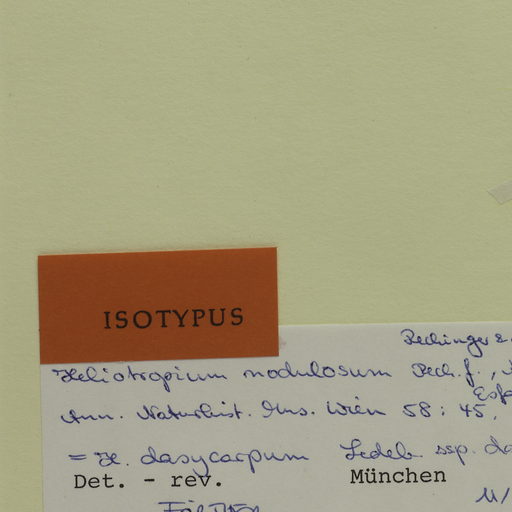 ISOTYPUS
Rechinger &
Heliotropium nodulosum Rech. f.,
Ann. Naturhist. Mus. Wien 58: 45,
= H. dasycarpum Ledeb. ssp.
Det. - rev. München